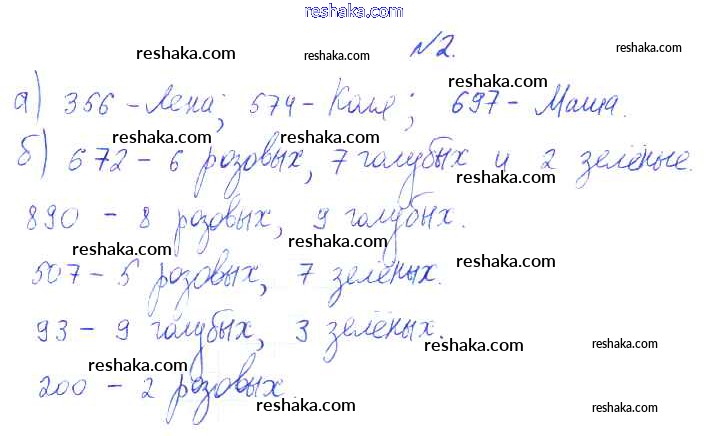 reshaka.com
reshaka.com reshaka.com reshaka.com
№2.
reshaka.com reshaka.com
а) 356 - Лена; 574 - Коля; 697 - Маша.
reshaka.com reshaka.com
б) 672 - 6 розовых, 7 голубых и 2 зелёные.
reshaka.com
890 - 8 розовых, 9 голубых.
reshaka.com reshaka.com
507 - 5 розовых, 7 зелёных.
reshaka.com
93 - 9 голубых, 3 зелёных.
reshaka.com reshaka.com
200 - 2 розовых.
reshaka.com reshaka.com